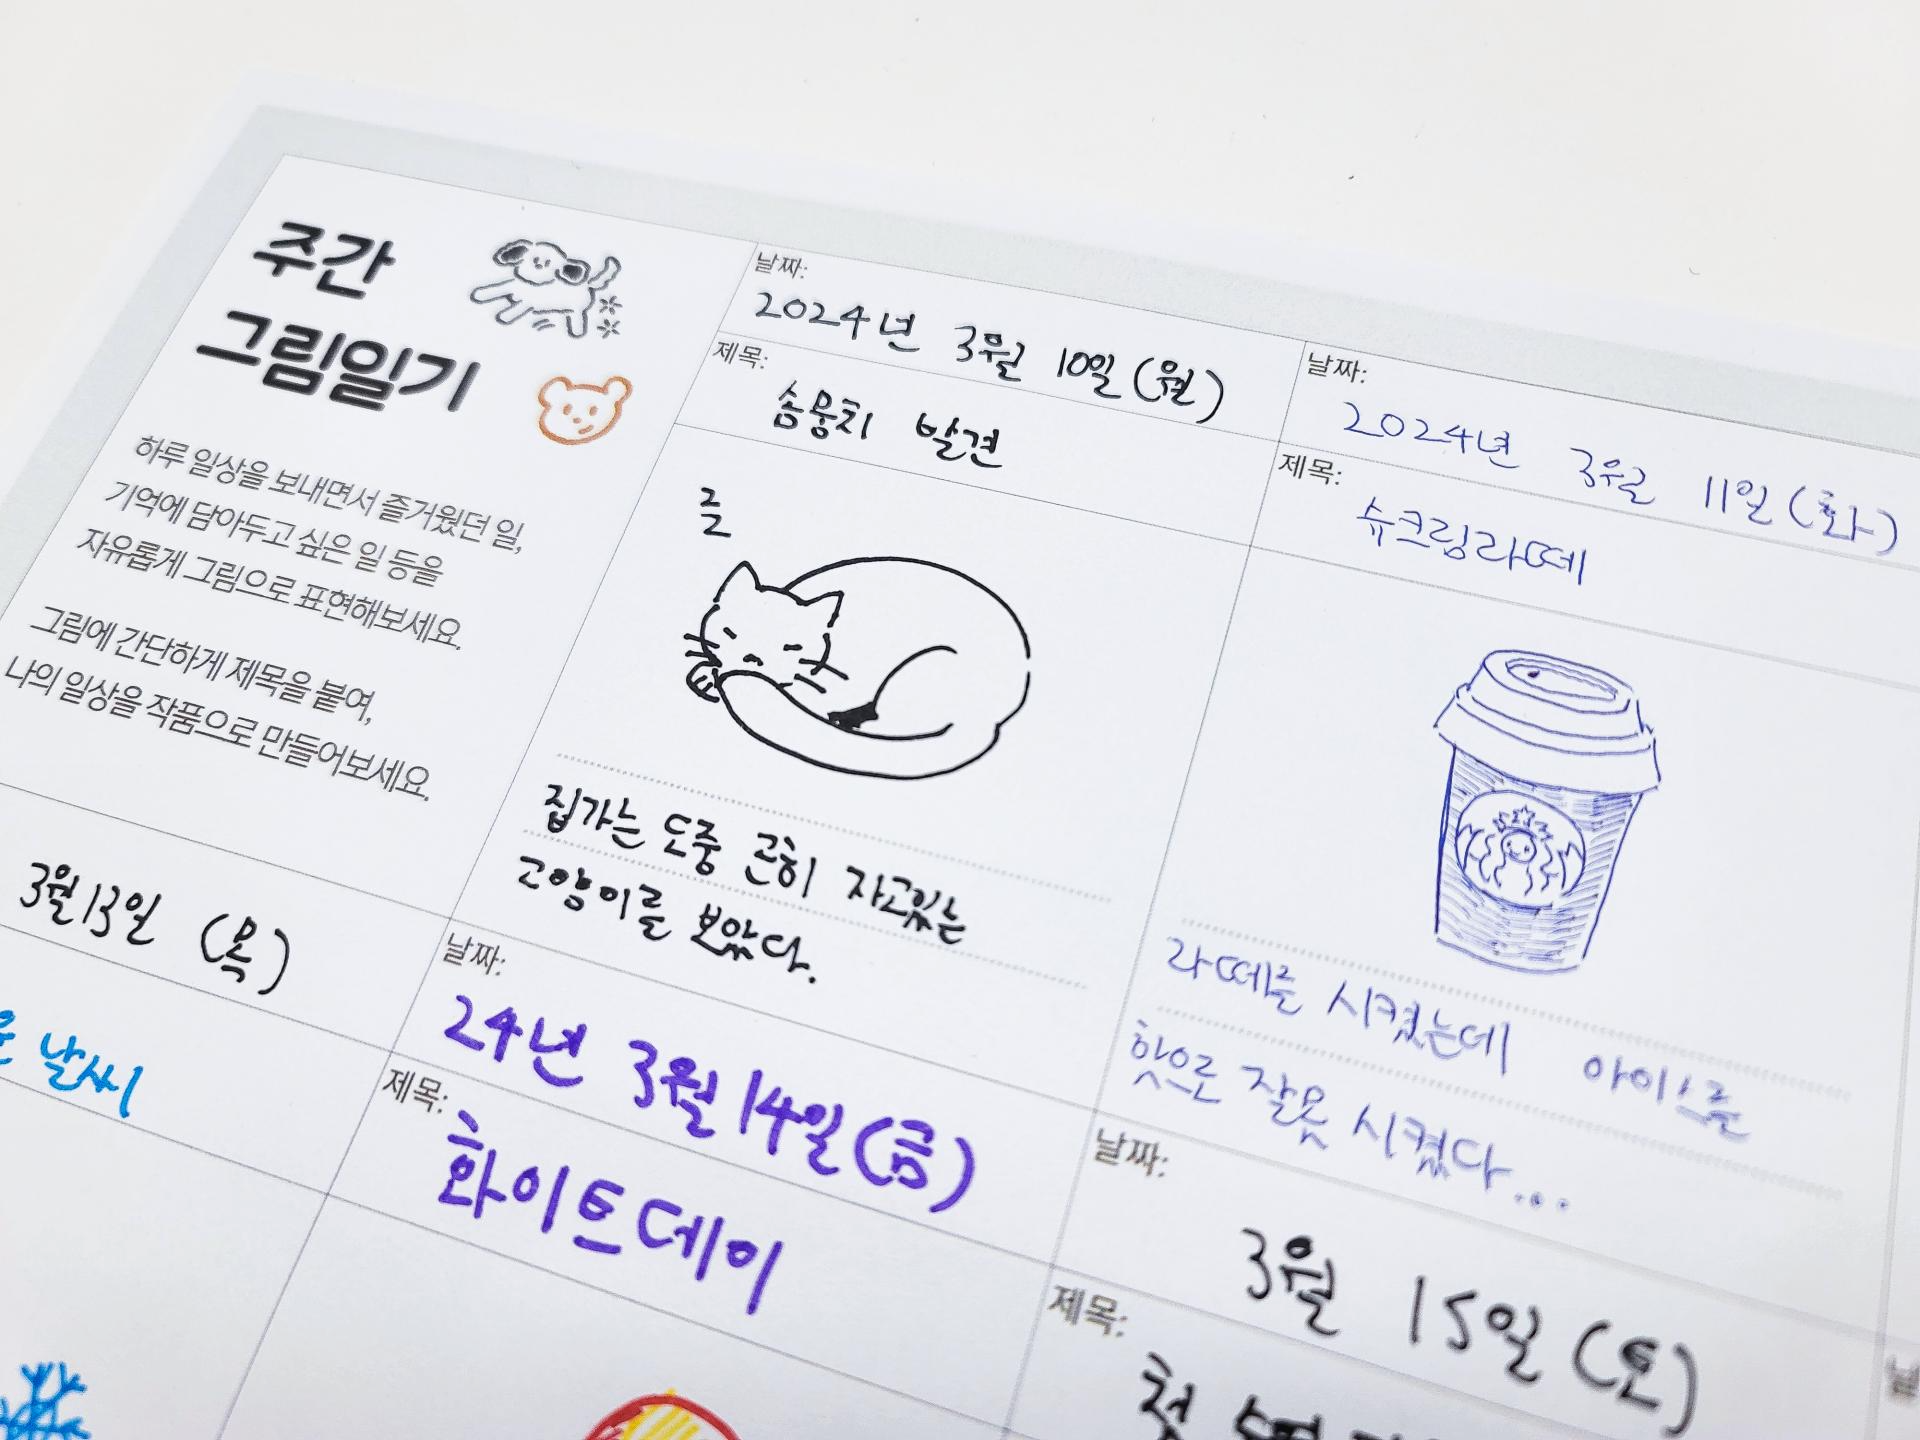 주간
그림일기
하루 일상을 보내면서 즐거웠던 일,
기억에 담아두고 싶은 일 등을
자유롭게 그림으로 표현해보세요.
그림에 간단하게 제목을 붙여,
나의 일상을 작품으로 만들어보세요.
날짜:
2024년 3월 10일 (월)
제목:
솜뭉치 발견
집가는 도중 곤히 자고있는
고양이를 보았다.
날짜:
2024년 3월 11일 (화)
제목:
슈크림라떼
라떼를 시켰는데 아이스를
핫으로 잘못 시켰다...
3월 13일 (목)
날씨
날짜:
24년 3월 14일 (금)
제목:
화이트데이
날짜:
3월 15일 (토)
제목: